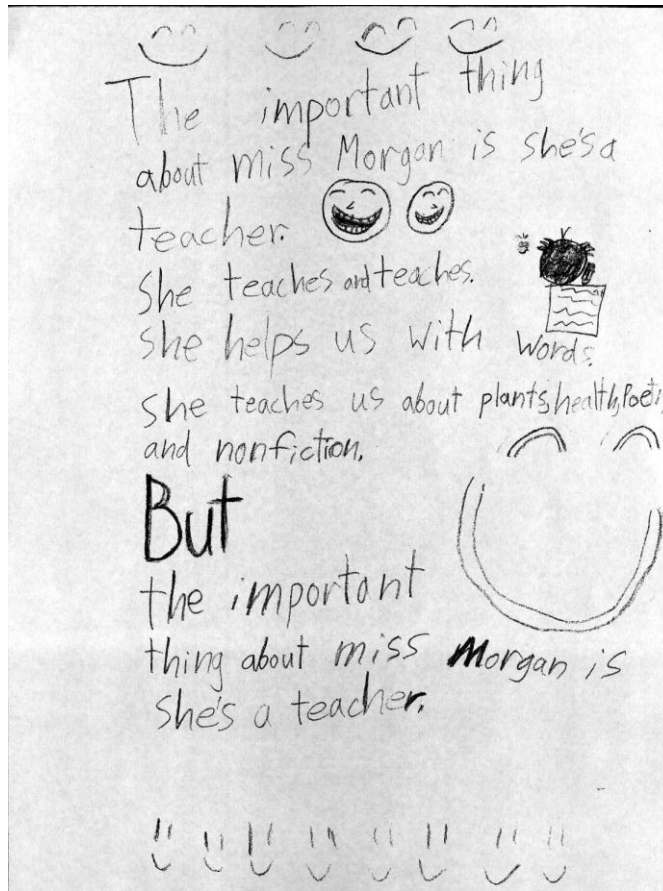 The important thing
about miss Morgan is she's a
teacher.
She teaches and teaches.
She helps us with words.
She teaches us about plants, health, Poet
and nonfiction.
But
the important
thing about miss Morgan is
she's a teacher.